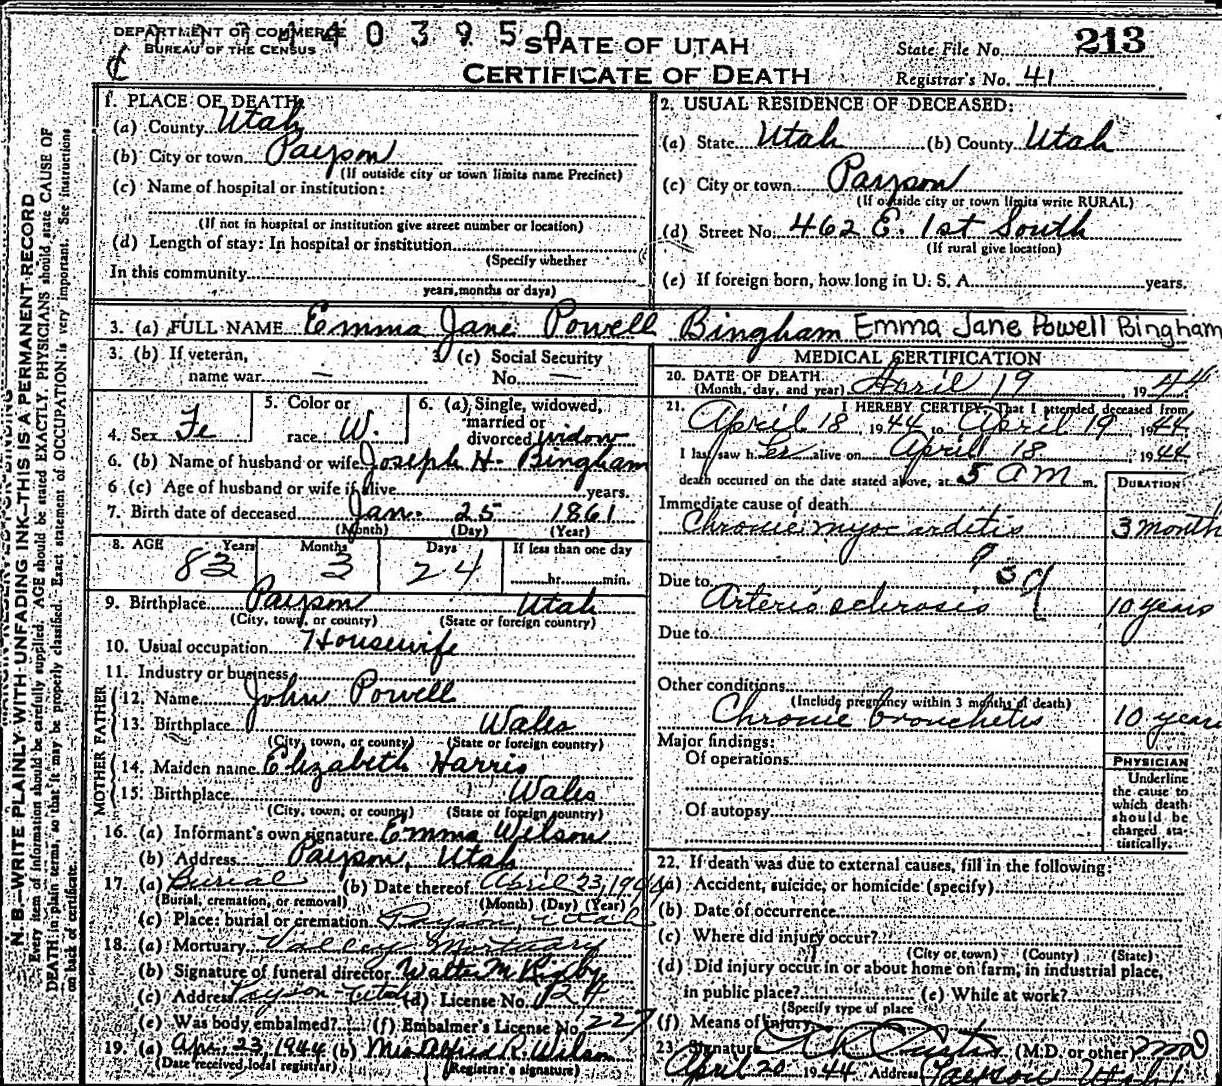 DEPARTMENT OF COMMERCE
BUREAU OF THE CENSUS
403950
STATE OF UTAH
CERTIFICATE OF DEATH
State File No. 213
Registrar's No. 41
N. B.—WRITE PLAINLY WITH UNFADING INK—THIS IS A PERMANENT RECORD
Every item of information should be carefully supplied. AGE should be stated EXACTLY. PHYSICIANS should state CAUSE OF
DEATH in plain terms, so that it may be properly classified. Exact statement of OCCUPATION is very important. See instructions
on back of certificate.
1. PLACE OF DEATH
(a) County Utah
(b) City or town Payson
(If outside city or town limits name Precinct)
(c) Name of hospital or institution:
(If not in hospital or institution give street number or location)
(d) Length of stay: In hospital or institution
(Specify whether
In this community
years, months or days)
2. USUAL RESIDENCE OF DECEASED:
(a) State Utah (b) County Utah
(c) City or town Payson
(If outside city or town limits write RURAL)
(d) Street No. 462 E. 1st South
(If rural give location)
(e) If foreign born, how long in U. S. A. years.
3. (a) FULL NAME Emma Jane Powell Bingham Emma Jane Powell Bingham
3. (b) If veteran,
name war —
3 (c) Social Security
No. —
4. Sex Fe
5. Color or
race W.
6. (a) Single, widowed,
married or
divorced widow
6. (b) Name of husband or wife Joseph H. Bingham
6 (c) Age of husband or wife if alive years.
7. Birth date of deceased Jan. 25 1861
(Month) (Day) (Year)
8. AGE Years Months Days If less than one day
83 3 24 hr. min.
9. Birthplace Payson Utah
(City, town, or county) (State or foreign country)
10. Usual occupation Housewife
11. Industry or business
FATHER
12. Name John Powell
13. Birthplace Wales
(City, town, or county) (State or foreign country)
MOTHER
14. Maiden name Elizabeth Harris
15. Birthplace Wales
(City, town, or county) (State or foreign country)
16. (a) Informant's own signature Emma Wilson
(b) Address Payson, Utah
17. (a) Burial (b) Date thereof April 23, 1944
(Burial, cremation, or removal) (Month) (Day) (Year)
(c) Place: burial or cremation Payson, Utah
18. (a) Mortuary Valley Mortuary
(b) Signature of funeral director Walter M Rigby
(c) Address Payson Utah (d) License No.
(e) Was body embalmed? (f) Embalmer's License No. 227
19. (a) Apr. 23, 1944 (b) Mrs Alfred R. Wilson
(Date received local registrar) (Registrar's signature)
MEDICAL CERTIFICATION
20. DATE OF DEATH
(Month, day, and year) April 19 1944
21. I HEREBY CERTIFY, That I attended deceased from
April 18 1944 to April 19, 1944
I last saw her alive on April 18 1944
death occurred on the date stated above, at 5 am m.
DURATION
Immediate cause of death
Chronic myocarditis 3 month
Due to
Arterio sclerosis 10 years
Due to
Other conditions
(Include pregnancy within 3 months of death)
Chronic bronchetis 10 years
Major findings:
Of operations
Of autopsy
PHYSICIAN
Underline
the cause to
which death
should be
charged sta-
tistically.
22. If death was due to external causes, fill in the following:
(a) Accident, suicide, or homicide (specify)
(b) Date of occurrence
(c) Where did injury occur?
(City or town) (County) (State)
(d) Did injury occur in or about home on farm, in industrial place,
in public place? (e) While at work?
(Specify type of place
(f) Means of Injury
23. Signature Curtis (M.D. or other)
April 20 1944 Address Payson Utah